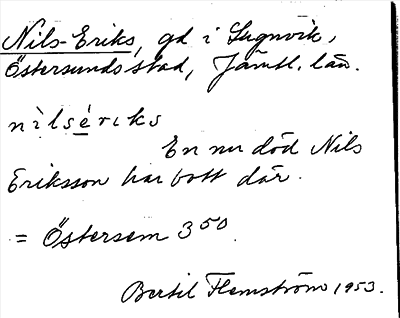 Nils-Eriks, gd i Lugnvik,
Östersunds stad, Jämtl. län.
nìlsériks
En nu död Nils
Eriksson har bott där.
= Östersem 3⁵⁰.
Bertil Flemström 1953.